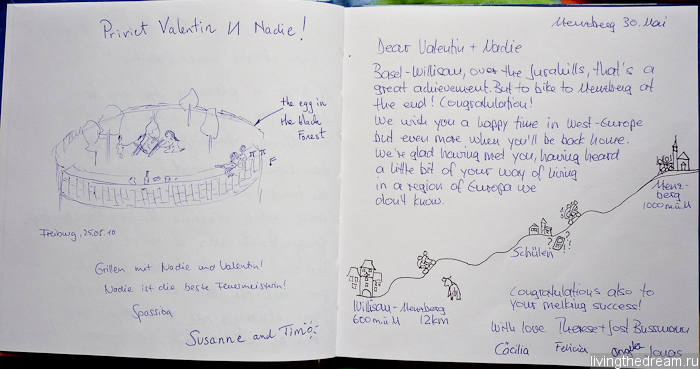 Priviet Valentin и Nadie!
the egg in
the black
Forest
Freiburg, 25.05.10
Grillen mit Nadie und Valentin!
Nadie ist die beste Feuermeisterin!
Spassiba
Susanne and Timo
Menzberg 30. Mai
Dear Valentin + Nadie
Basel-Willisau, over the Jurahills, that's a
great achievement. But to bike to Menzberg at
the end! Congratulation!
We wish you a happy time in West-Europe
but even more when you'll be back house.
We're glad having met you, having heard
a little bit of your way of living
in a region of Europa we
don't know.
Menz-
berg
1000 m ü M
Schülen
? ? ?
Willisau - Menzberg
600 m ü M 12km
Congratulations also to
your melking success!
With love Therese + Josef Bussmann
Cäcilia Felicia Angelika Jonas
livingthedream.ru